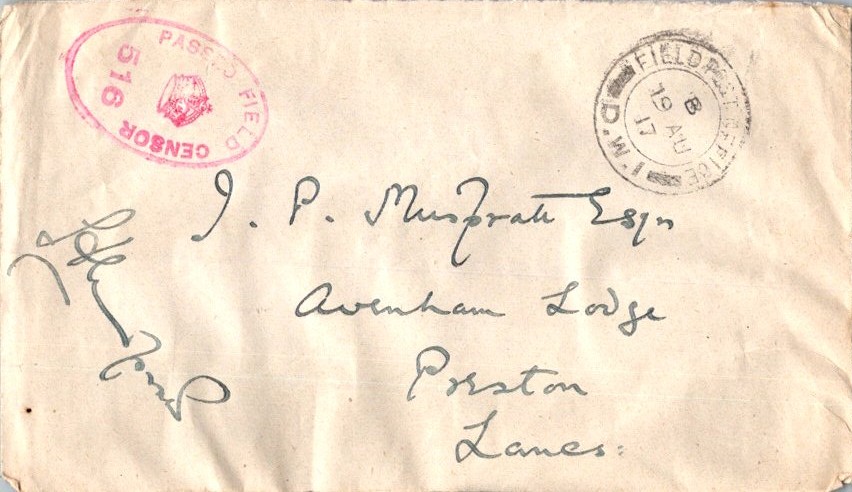 PASSED FIELD CENSOR
516
FIELD POST OFFICE
D.W.1
B
19 AU
17
J. P. Muspratt Esqr
Avenham Lodge
Preston
Lancs: